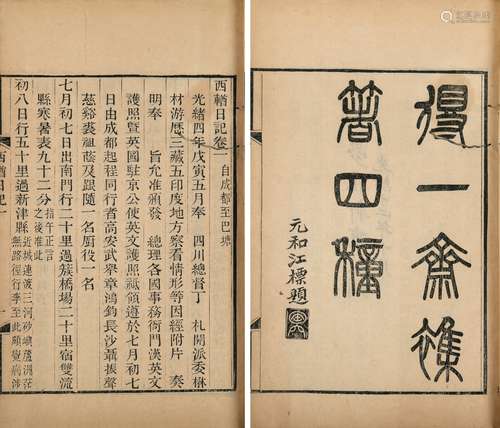 得一齋雜
著四種
元和江標題
西輶日記卷一 自成都至巴塘
光緒四年戊寅五月奉 四川總督丁 札開派委楙
材游歷三藏五印度地方察看情形等因經附片 奏
明奉 旨允准頒發 總理各國事務衙門漢英文
護照暨英國駐京公使英文護照祗領遵於七月初七
日由成都起程同行者高安武舉章鴻鈞長沙聶振聲
慈谿裘祖蔭及跟隨一名廚役一名
七月初七日出南門行二十里過簇橋場二十里宿雙流
縣寒暑表九十二分 指午正言之後准此
初八日行五十里過新津縣 近城連渡三河砂磧蘆洲茫無路徑行李至此頗覺病涉
西輶日記 一